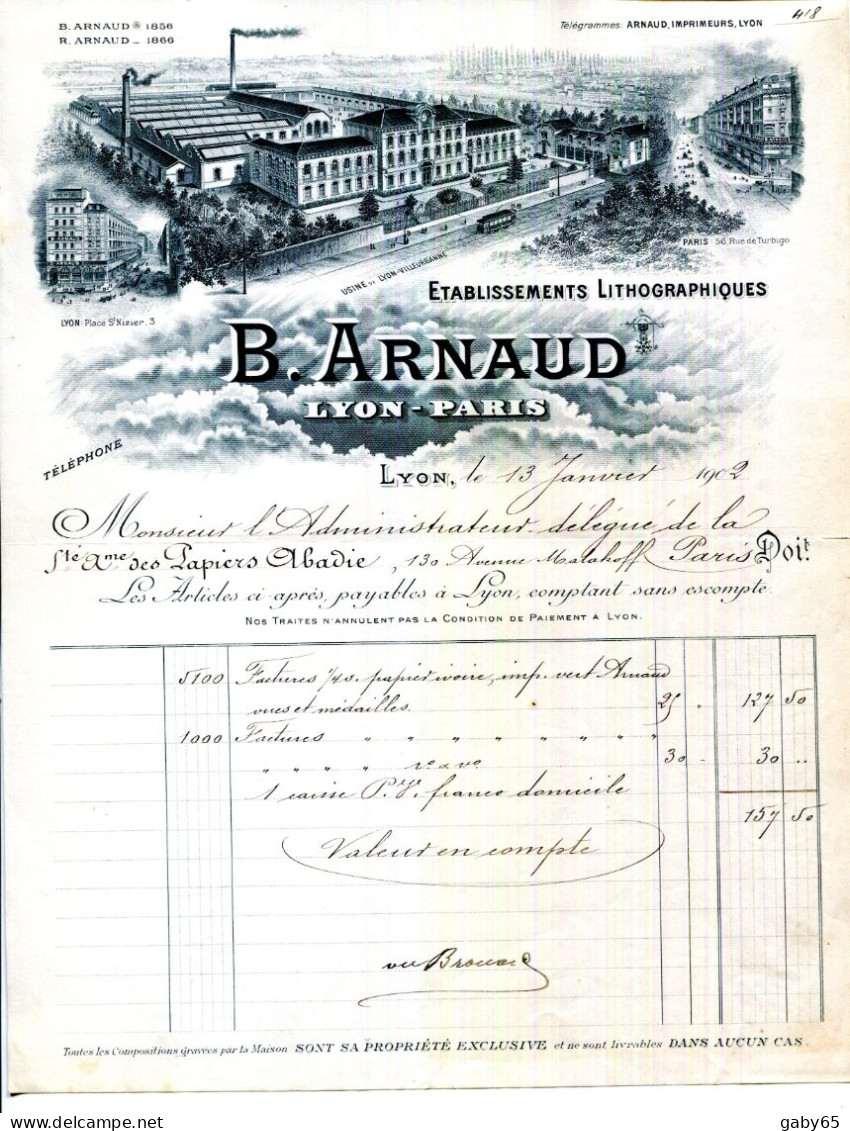 B. ARNAUD 1856
R. ARNAUD _ 1866
Télégrammes. ARNAUD, IMPRIMEURS, LYON
418
PARIS 56, Rue de Turbigo
USINE DE LYON-VILLEURBANNE
LYON Place St Nizier, 3
ETABLISSEMENTS LITHOGRAPHIQUES
B. ARNAUD
LYON - PARIS
TÉLÉPHONE
LYON, le 13 Janvier 1902
Monsieur l'Administrateur délégué de la
Sté Ame des Papiers Abadie, 130 Avenue Malakoff Paris Doit
Les Articles ci-après, payables à Lyon, comptant sans escompte.
NOS TRAITES N'ANNULENT PAS LA CONDITION DE PAIEMENT À LYON.
5100 Factures 1/40. papier ivoire, imp. vert Arnaud
vues et médailles. 25 " 127 50
1000 Factures " " " " " " " "
" " " " ro & vo 30 - 30 ..
1 caisse franco domicile
157 50
Valeur en compte
Toutes les Compositions gravées par la Maison SONT SA PROPRIÉTÉ EXCLUSIVE et ne sont livrables DANS AUCUN CAS.
www.delcampe.net
gaby65